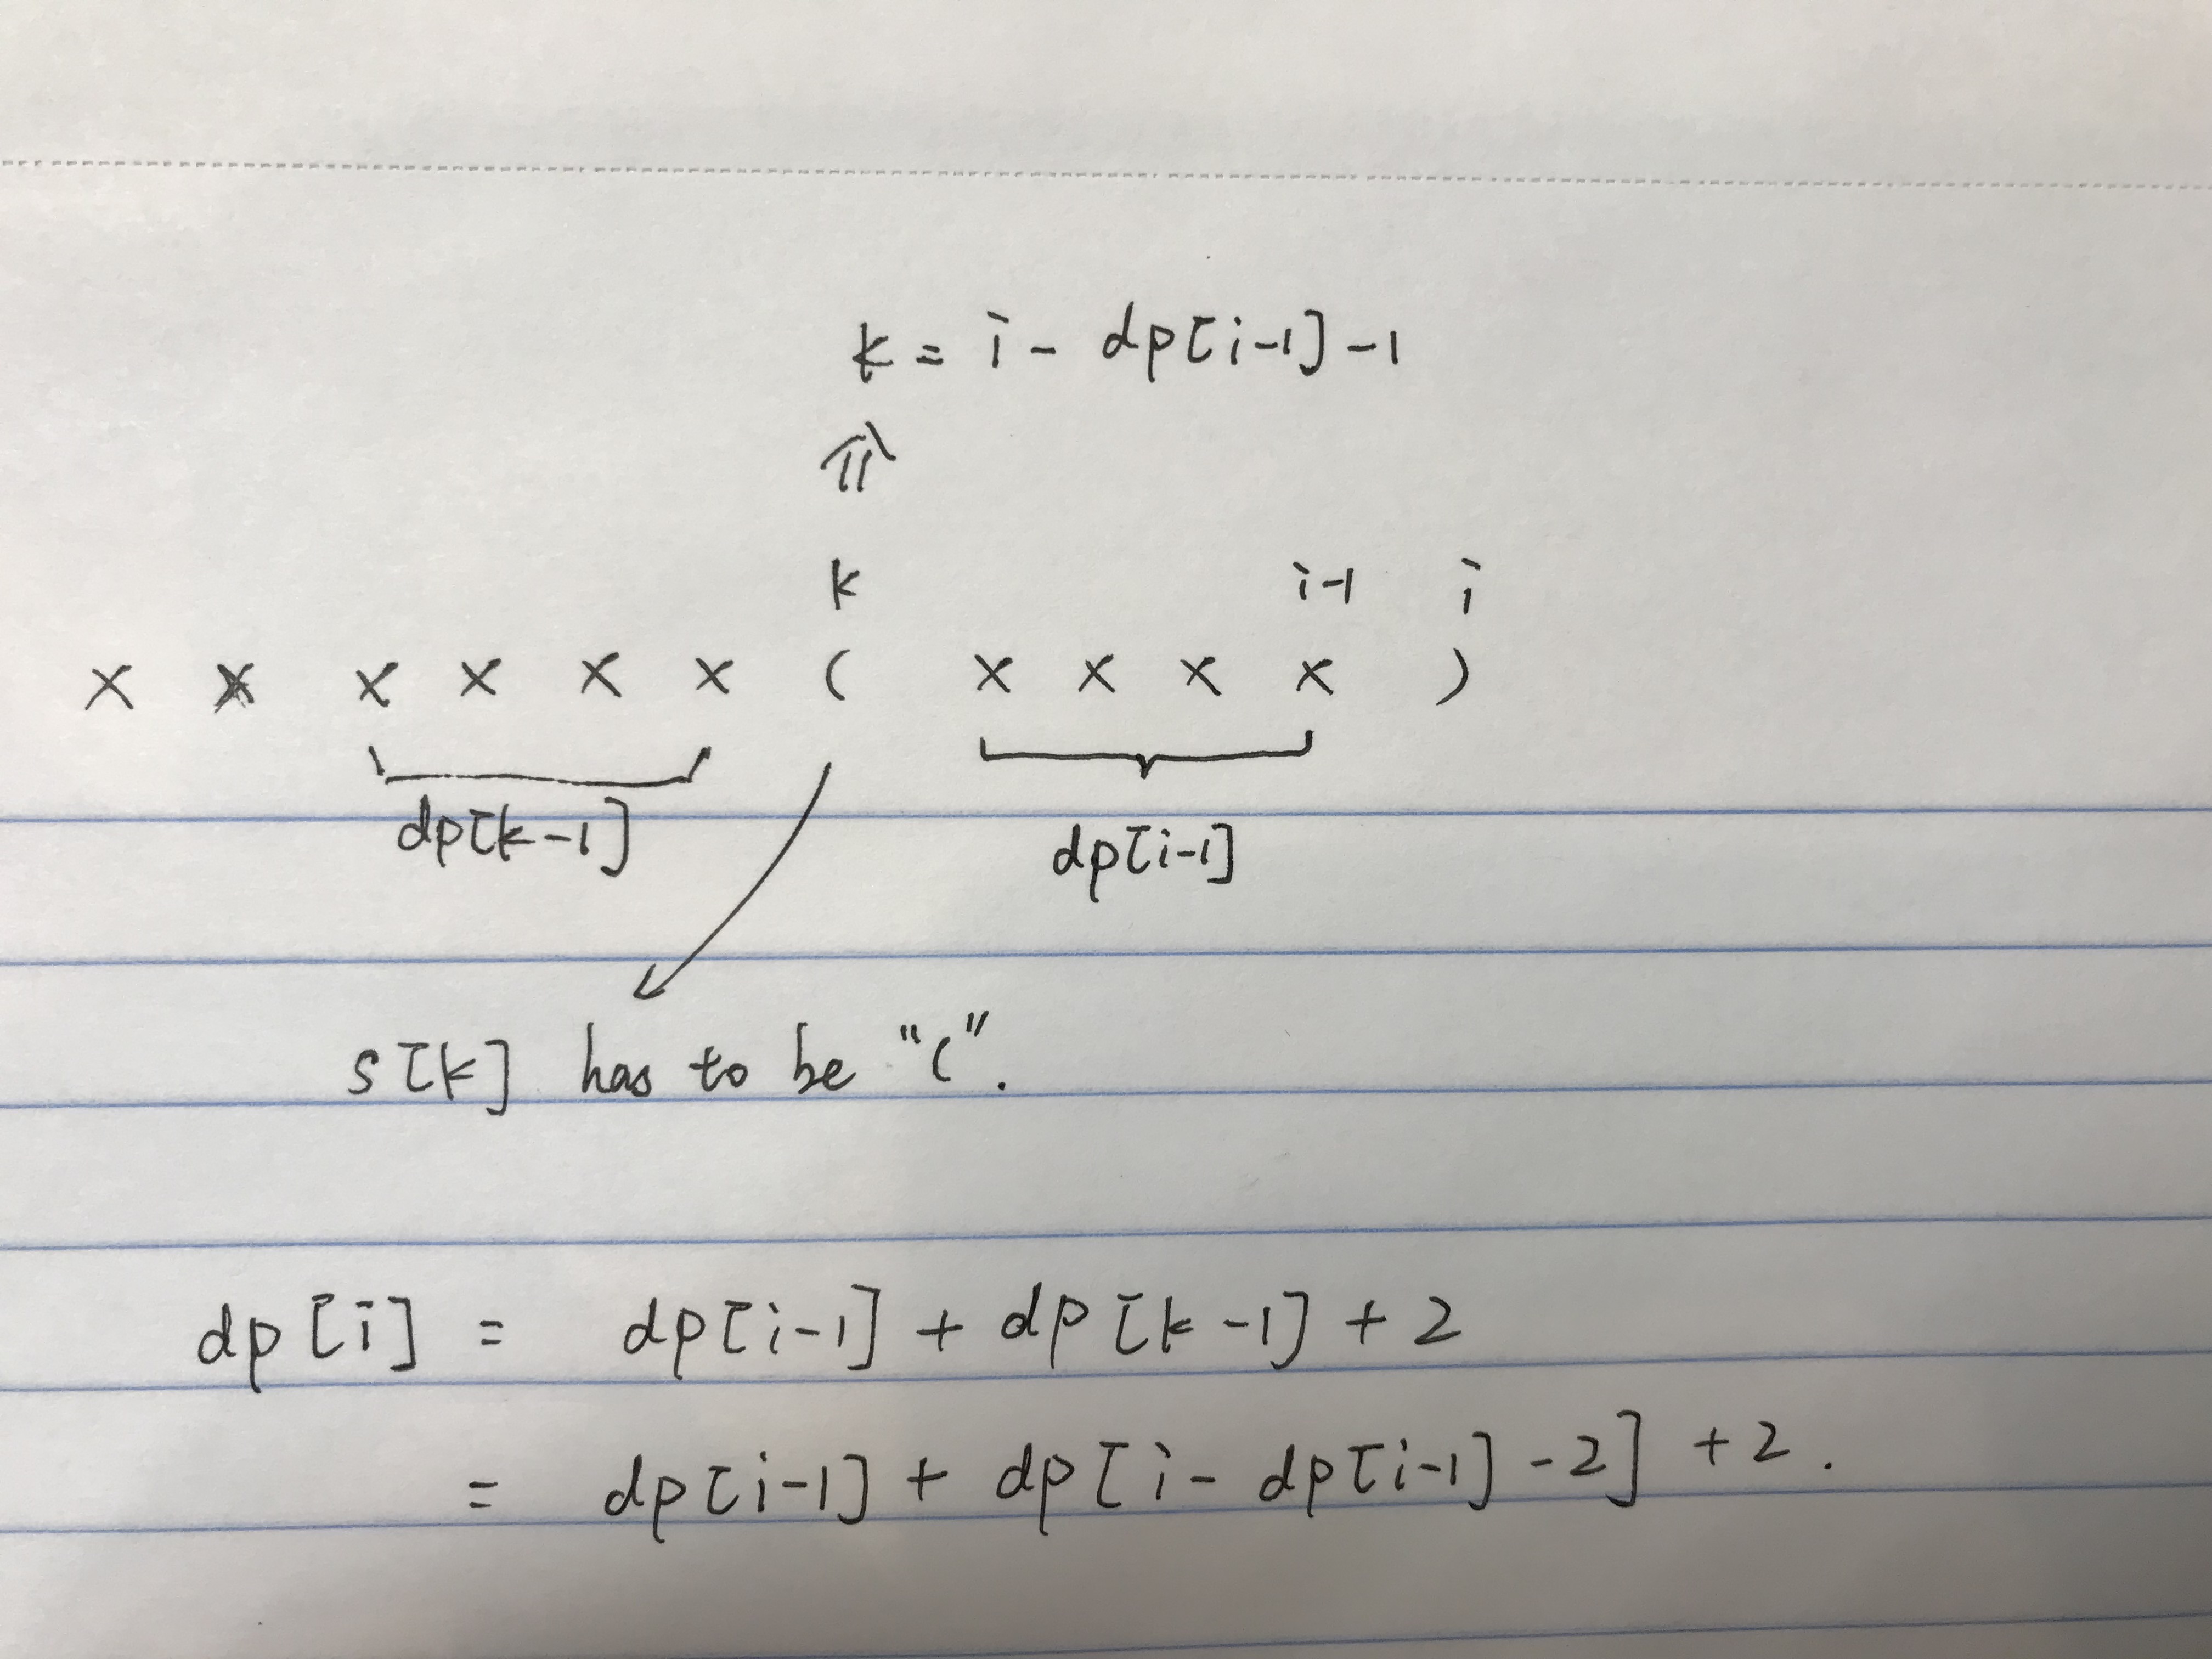 k = i - dp[i-1] - 1
⇓
k i-1 i
x x x x x x ( x x x x )
dp[k-1] dp[i-1]
s[k] has to be "(".
dp[i] = dp[i-1] + dp[k-1] + 2
= dp[i-1] + dp[i - dp[i-1] - 2] + 2.